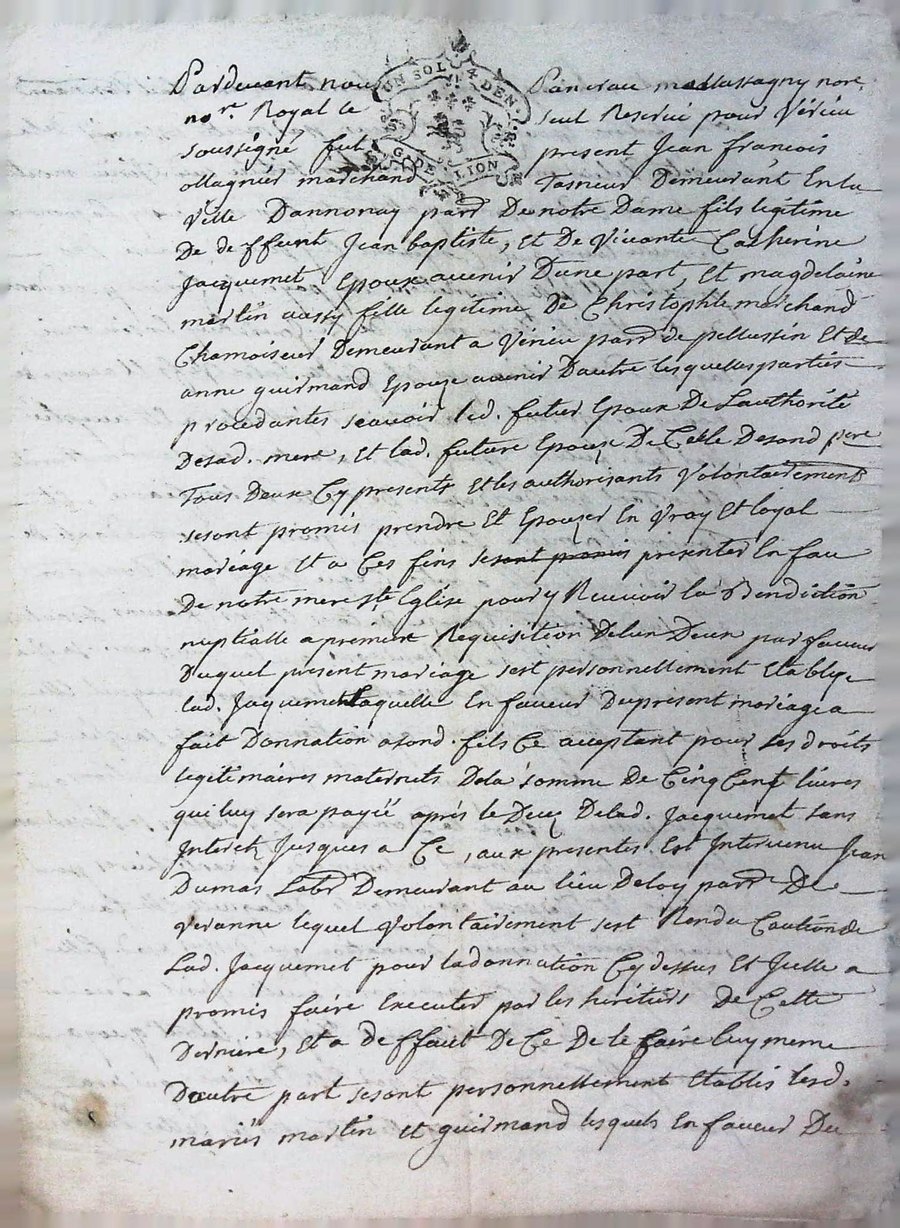 Pardevant nous
UN SOL 4 DEN
G. DE LION
Pancrau mallassagny nore.
nore. Royal le
seul Reservé pour Vérieu
soussigné fut
present Jean francois
ollagnier marchand
Tasneur Demeurant En la
Ville Dannonay parr De notre Dame fils legitime
De deffunt Jean baptiste, Et De Vivante Catherine
Jacquemet Epoux avenir Dune part, Et magdelaine
martin aussy fille legitime De Christophle marchand
Chamoiseur Demeurant a Vérieu parr de pellussin Et de
anne guirmand Epouze avenir Dautre lesquelles parties
procedantes scavoir led. futur Epoux De Lauthorité
Desad. mere, Et lad. future Epouze De Celle Desond pere
Tous Deux Cy presents Et les authorisants Volontairement
sesont promis prendre Et Epouzer En Vray Et loyal
mariage Et a Ces fins sesont promis presenter En face
De notre mere ste Eglise pour y Recevoir la Benediction
nuptialle a premiere Requisition Delun Deux par faveur
Duquel present mariage sest personnellement Etablye
Lad. Jacquemet laquelle En faveur Dupresent mariage a
fait Donnation a sond. fils Ce acceptant pour ses droits
legitimaires maternels Dela somme De Cinq Cent livres
qui luy sera payée aprés le Decez Delad. Jacquemet sans
Interetz Jusques a Ce, aux presentes Est Intervenu Jean
Dumas Labr Demeurant au lieu Deloy parr De
Veranne lequel Volontairement sest Rendu Caution de
Lad. Jacquemet pour la donnation Cy dessus Et Icelle a
promis faire Executer par les heritiers De Cette
Derniere, Et a deffaut De Ce De le faire luy meme
Dautre part sesont personnellement Etablis lesd.
mariés martin Et guirmand lesquels En faveur Du